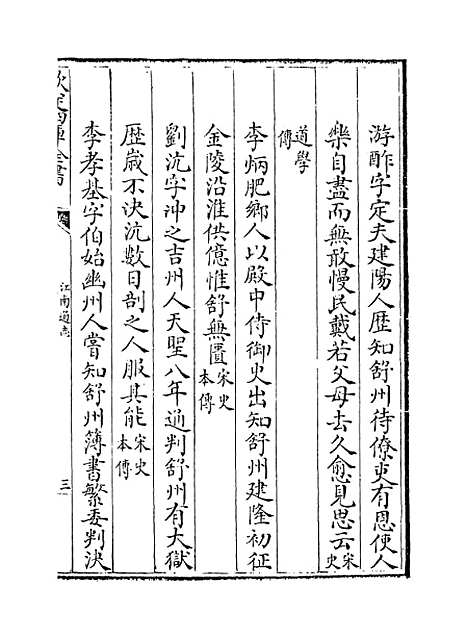 游酢字定夫建陽人歴知舒州待僚吏有恩使人
樂自盡而無敢慢民戴若父母去久愈見思云宋史
道學傳
李炳肥鄉人以殿中侍御史出知舒州建隆初征
金陵沿淮供億惟舒無匱宋史本傳
劉沆字冲之吉州人天聖八年通判舒州有大獄
歴嵗不決沆數日剖之人服其能宋史本傳
李孝基字伯始幽州人嘗知舒州簿書繁委判決
欽定四庫全書
江南通志
三